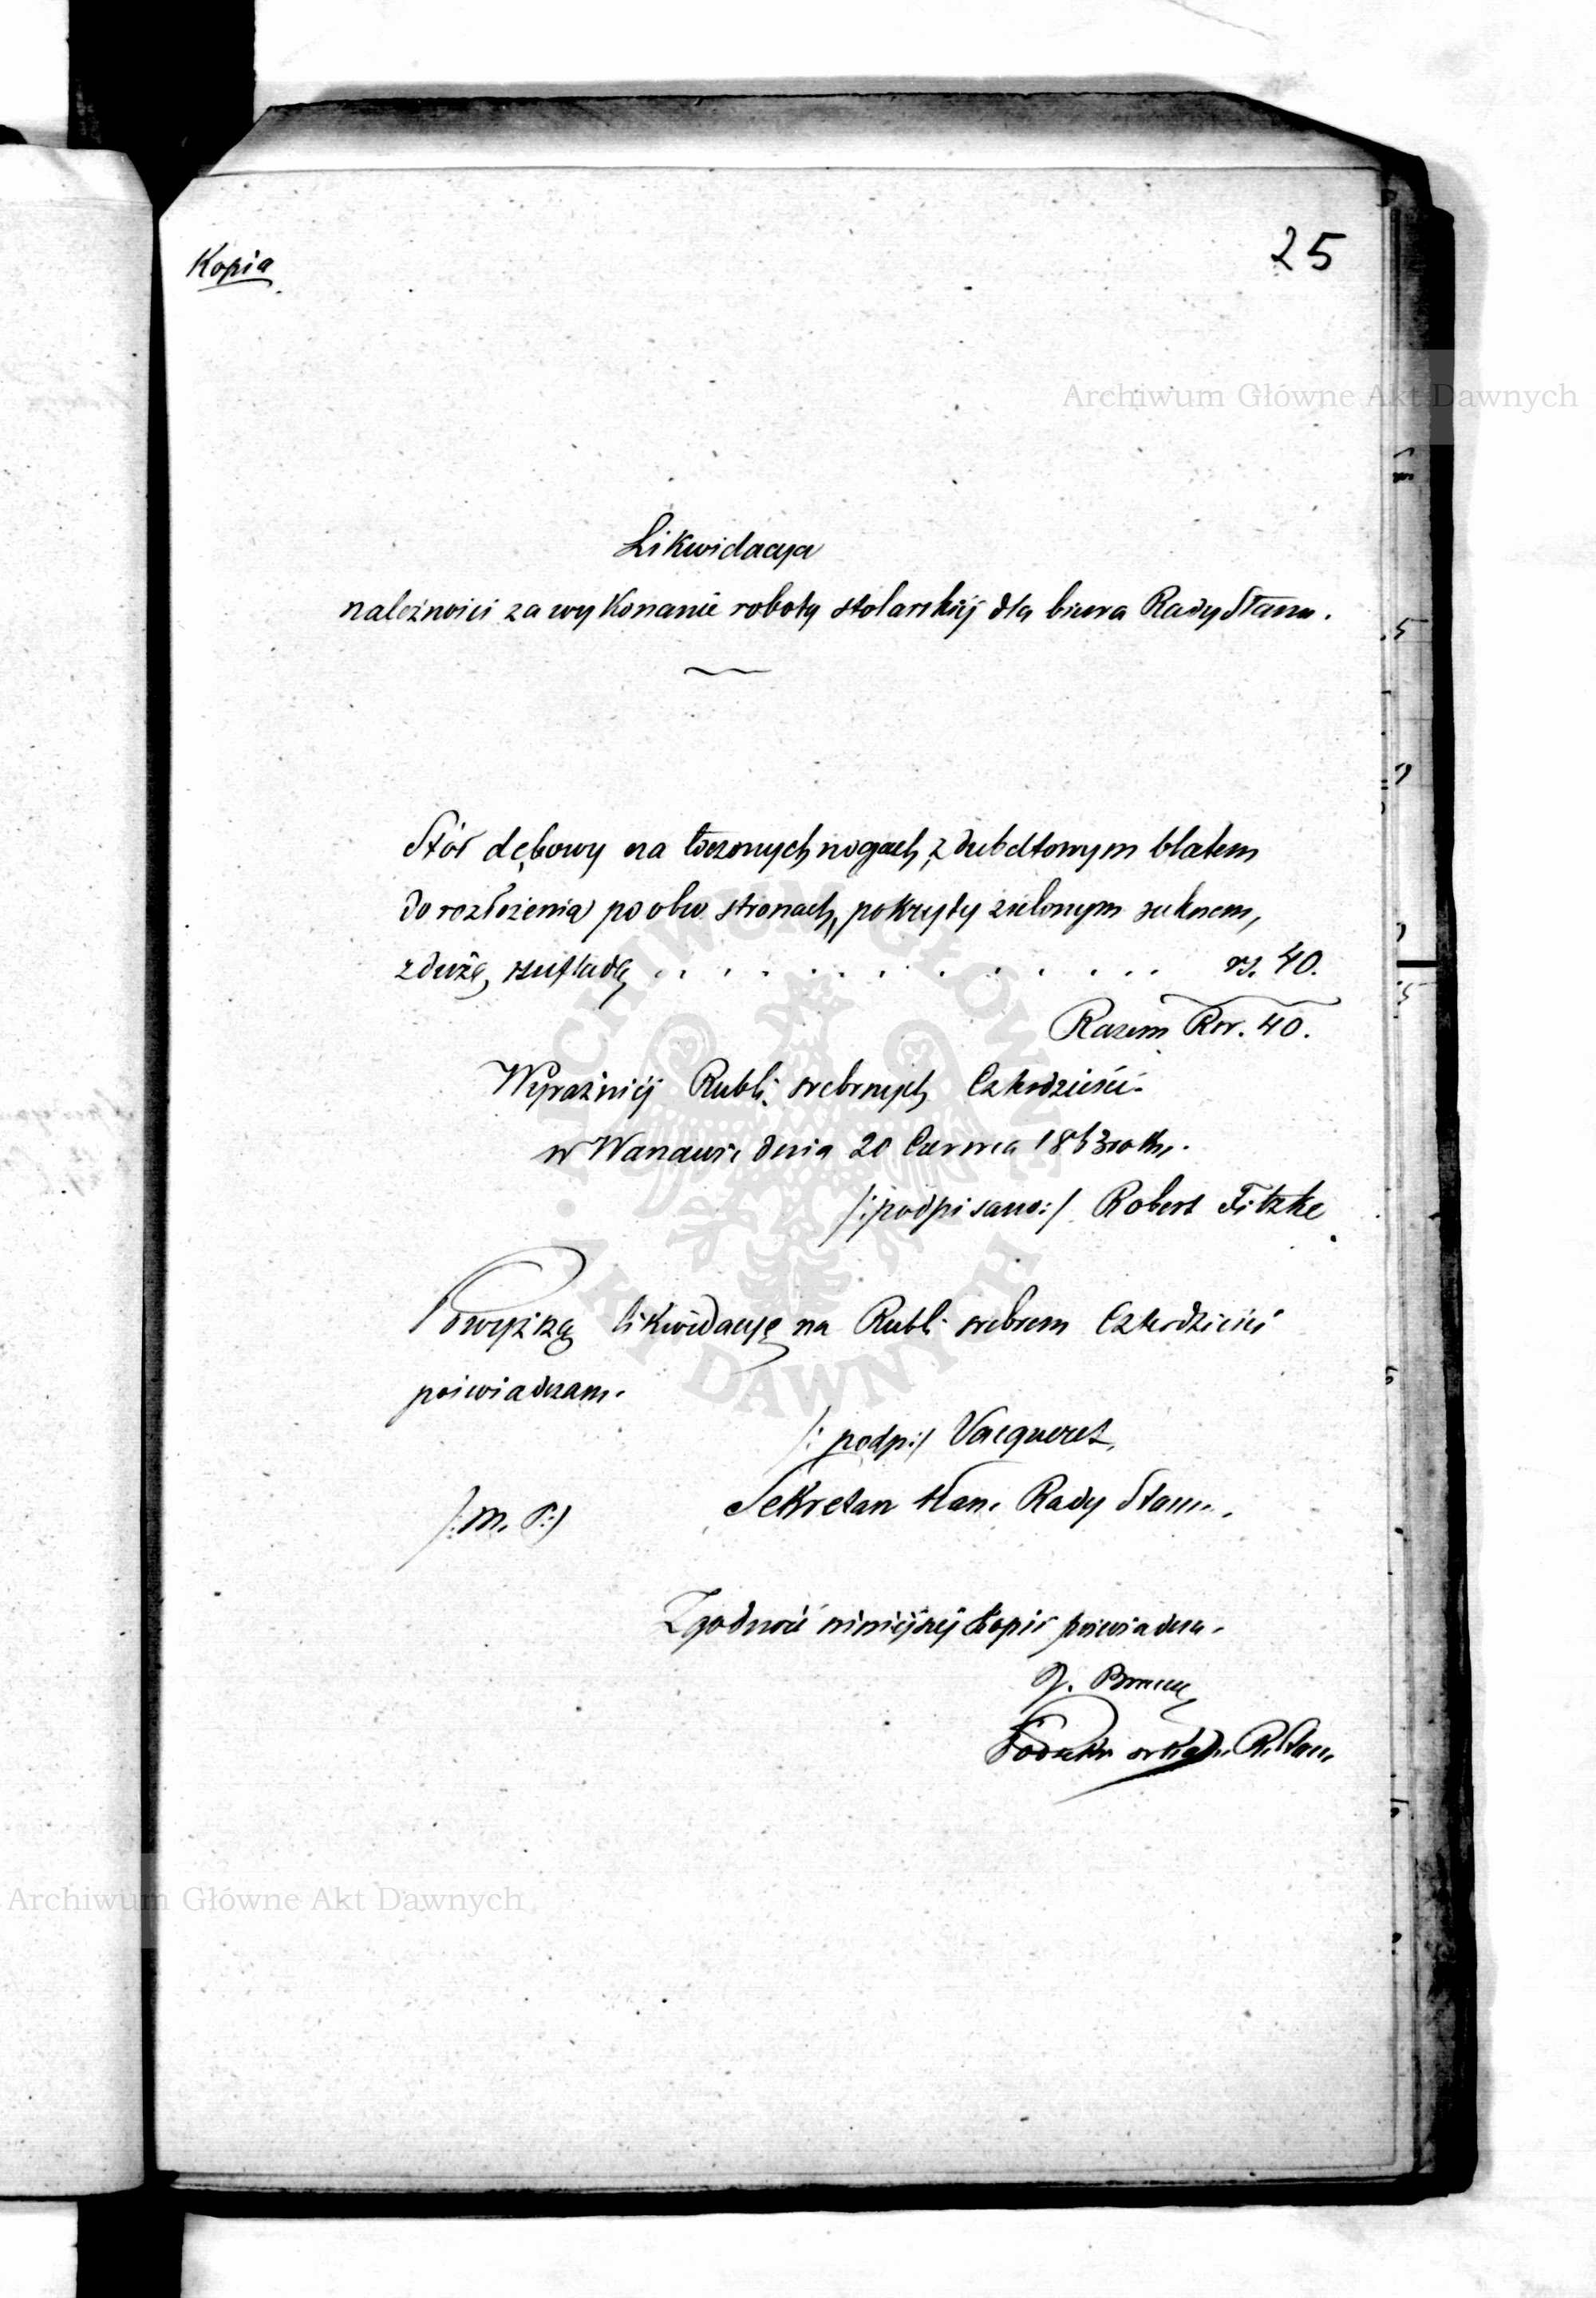 Kopia
25
Archiwum Główne Akt Dawnych
Likwidacya
należności za wykonanie roboty stolarskiéj dla biura Rady Stanu.
Stół dębowy na toczonych nogach, z dubeltowym blatem
do rozłożenia po obu stronach, pokryty zielonym suknem,
z dużą szufladą . . . . . . . . . . . . rs. 40.
Razem Rsr. 40.
Wyraźniéj Rubli srebrnych Czterdzieści.
w Warszawie dnia 20 Czerwca 1863 roku.
/:podpisano:/ Robert Fitzke
Powyższą likwidacyę na Rubli srebrem Czterdzieści
poświadczam.
/:podp:/ Vacqueret,
Sekretarz Stanu Rady Stanu.
/:M. P:/
Zgodność niniejszéj kopii poświadcza.
R. Stanu
ARCHIWUM GŁÓWNE
AKT DAWNYCH
Archiwum Główne Akt Dawnych